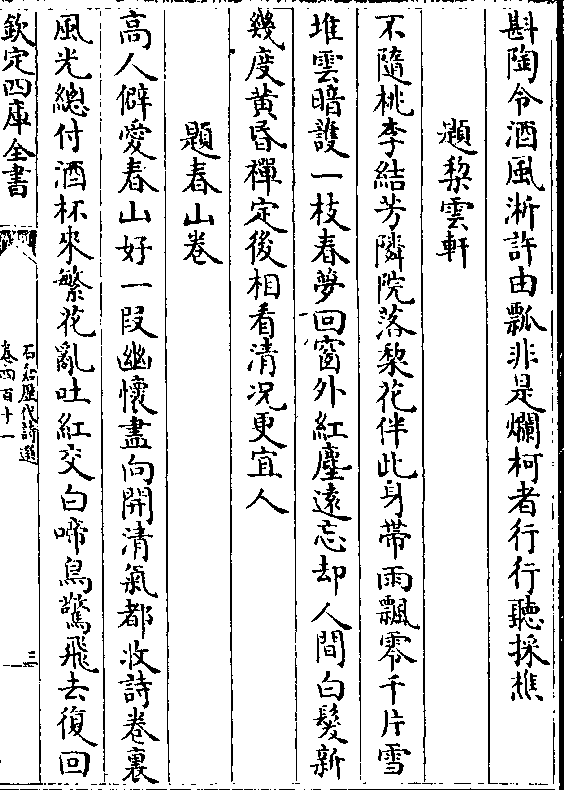 斟陶令酒風淅許由瓢非是爛柯者行行聽採樵
題棃雲軒
不隨桃李結芳隣院落棃花伴此身帶雨飄零千片雪
堆雲暗護一枝春夢回窗外紅塵遠忘却人間白髮新
幾度黃昏禪定後相看清况更宜人
題春山卷
高人僻愛春山好一段幽懷盡向開清氣都收詩卷裏
風光總付酒杯來繁花亂吐紅交白啼鳥驚飛去復回
欽定四庫全書
石倉歷代詩選
卷四百十一
三